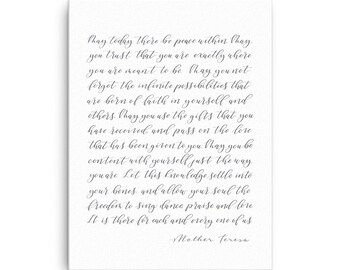 May today there be peace within May
you trust that you are exactly where
you are meant to be May you not
forget the infinite possibilities that
are born of faith in yourself and
others May you use the gifts that you
have received and pass on the love
that has been given to you May you be
content with yourself just the way
you are Let this knowledge settle into
your bones and allow your soul the
freedom to sing dance praise and love
It is there for each and every one of us
-Mother Teresa